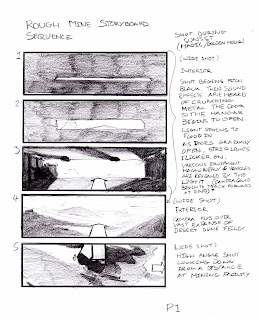 ROUGH MINE STORYBOARD
SEQUENCE
SHOT DURING
SUNSET
(MAGIC/GOLDEN HOUR)
1
(WIDE SHOT)
INTERIOR
SHOT BEGINS PITCH
BLACK. THEN SOUND
EFFECTS ARE HEARD
OF CRUNCHING
METAL. THE DOOR
TO THE HANGAR
BEGINS TO OPEN.
2
LIGHT BEGINS TO
FLOOD IN
AS DOORS GRADUALLY
OPEN, STRIP LIGHTS
FLICKER ON.
3
VARIOUS EQUIPMENT
MACHINERY & VEHICLES
ARE REVEALED BY THE
LIGHT. (CAMERA
BEGINS TO TRACK FORWARD
AT END)
4
(WIDE SHOT)
EXTERIOR
CAMERA FLYS OVER
VAST EXPANSE OF
DESERT DUNE FIELDS.
5
(WIDE SHOT)
HIGH ANGLE SHOT
LOOKING DOWN
FROM A DISTANCE
AT MINING FACILITY
P1